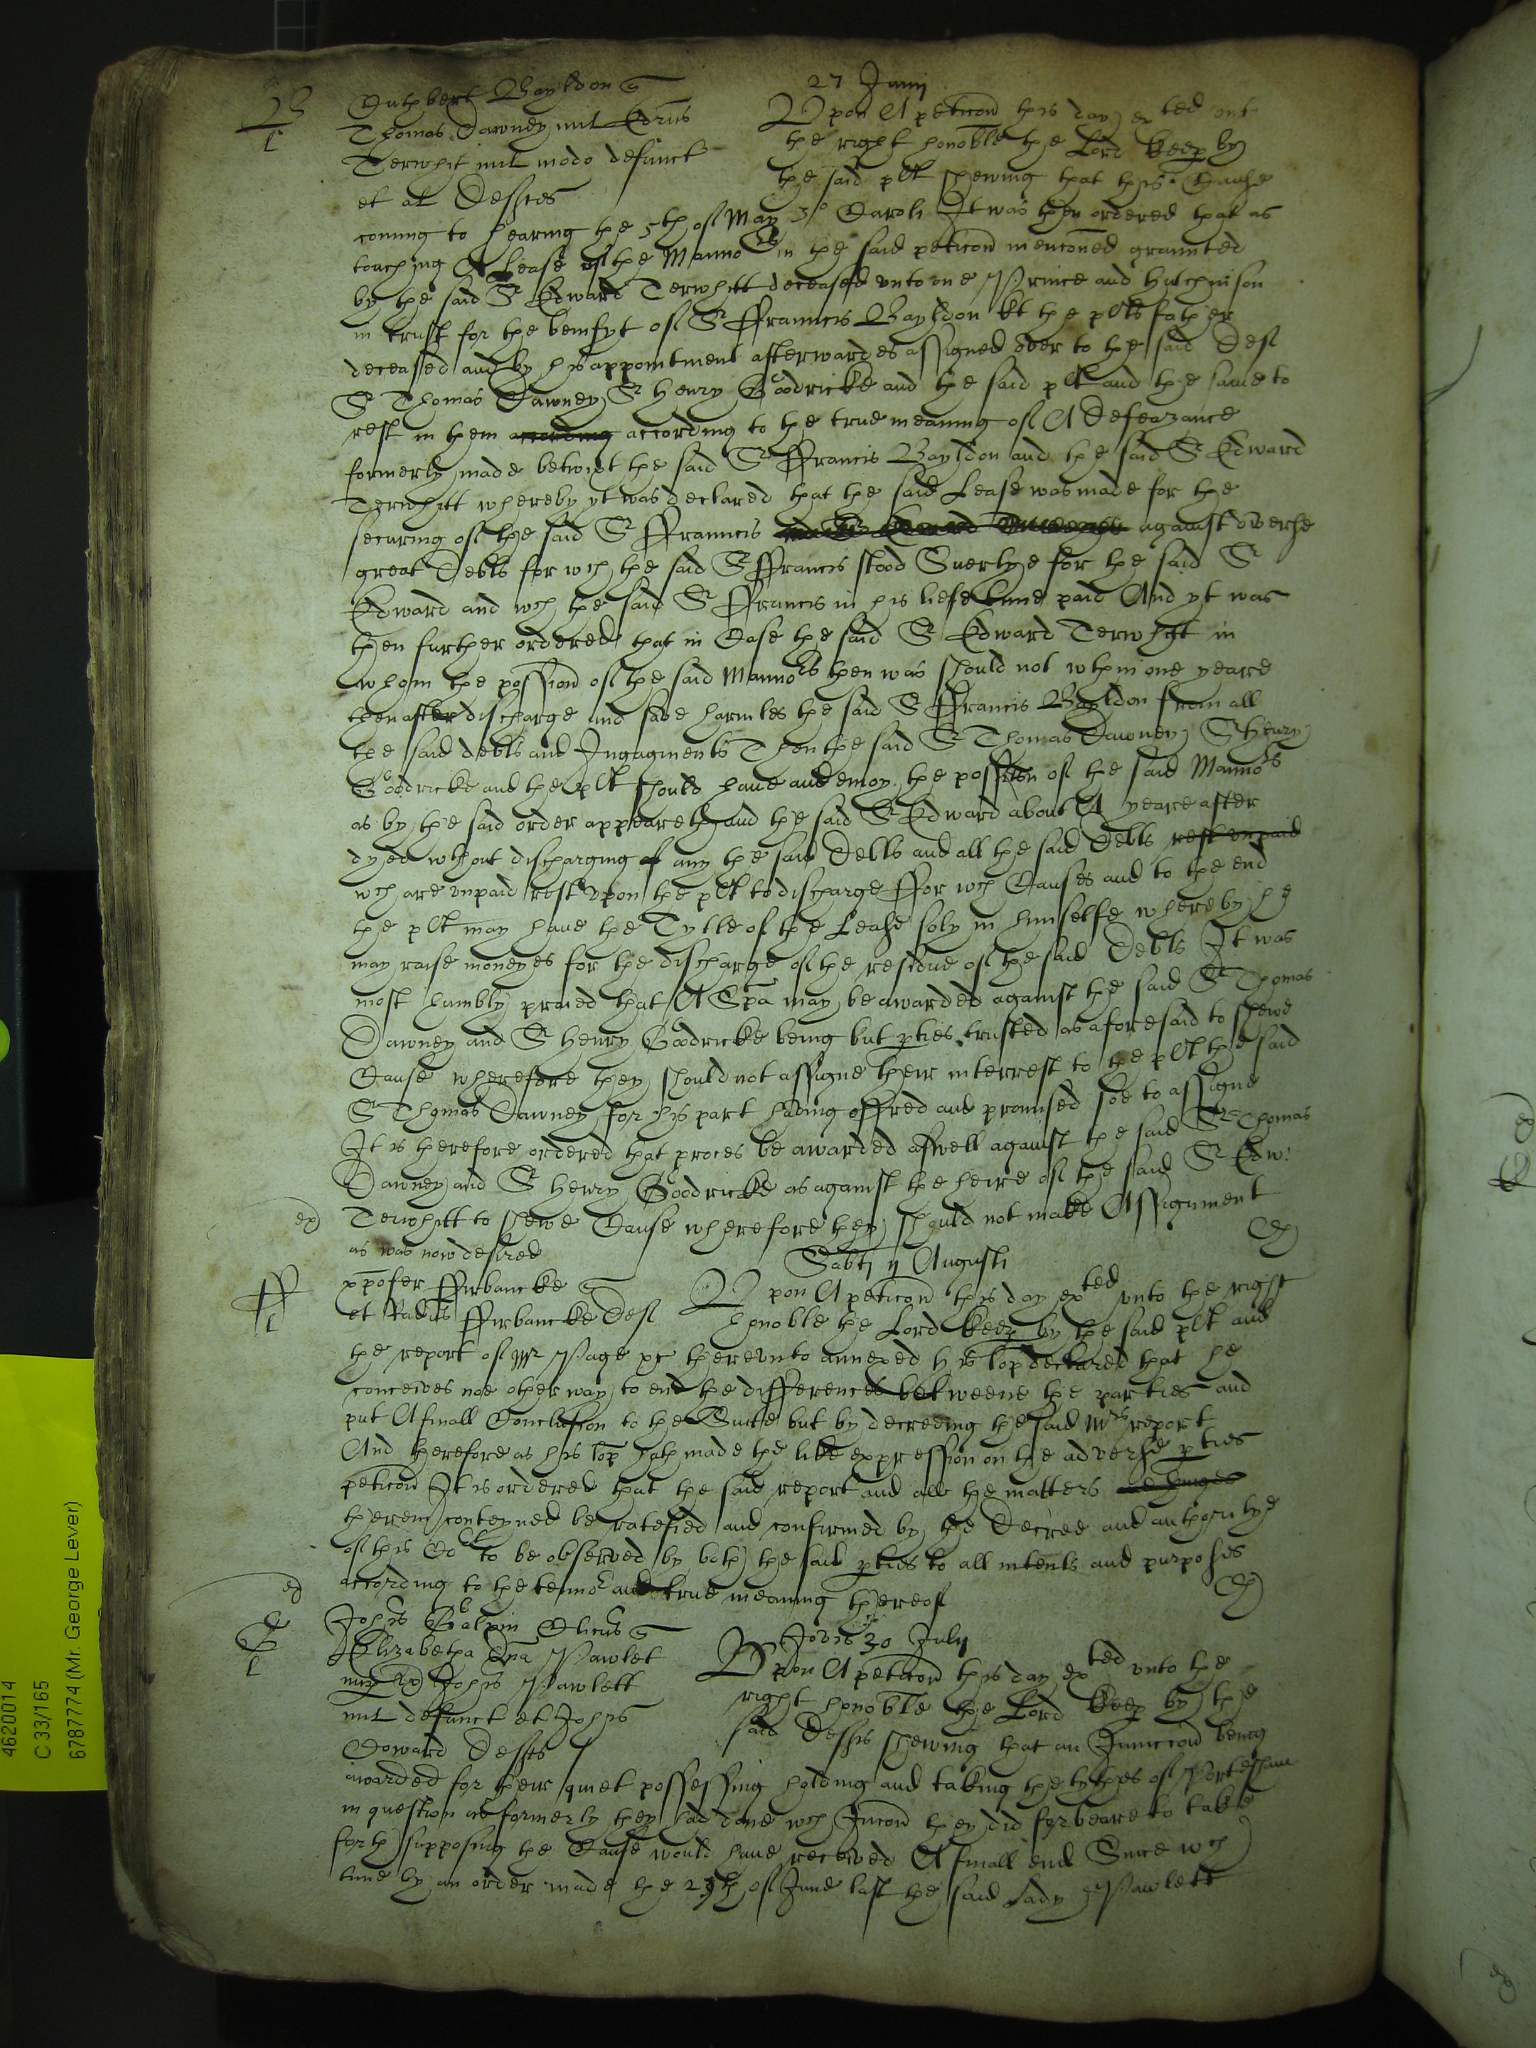 27 Junij
B
l
Cuthbert Bayldon q
Thomas Dawney mil Edrus
Terwhit mil modo defunct
et al Deftes
Upon A peticon this day exted unto
the right honoble the Lord keep by
the said plt shewing that this Cause
coming to hearing the 5th of May 3o Caroli It was then ordered that as
touching A Lease of the Mannors in the said peticon mencioned graunted
by the said Sr Edward Terwhitt deceased unto one Prince and Hutchinson
in trust for the benifyt of Sr ffrauncis Bayldon kt the plts father
deceased and by his appointment afterwardes assigned over to the said Deft
Sr Thomas Dawney Sr Henry Goodricke and the said plt and the same to
rest in them according according to the true meaning of A Defeazance
formerly made betwixt the said Sr ffrancis Bayldon and the said Sr Edward
Terwhitt whereby yt was declared that the said Lease was made for the
securing of the said Sr ffrauncis against diverse
great Debts for wch the said Sr ffrancis stood Suertye for the said Sr
Edward and wch the said Sr ffrancis in his liefe time paid And yt was
then further ordered that in Case the said Sr Edward Terwhit in
whom the possion of the said Mannors then was should not wthin one yeare
then after discharge and save harmles the said Sr ffrancis Bayldon from all
the said debts and Ingagments Then the said Sr Thomas Dawney Sr Henry
Goodricke and the plt should have and enioy the possion of the said Mannors
as by the said order appeareth and the said Sr Edward about A yeare after
dyed wthout discharging of any the said Debts and all the said Debts rest unpaid
wch are unpaid rest upon the plt to discharge ffor wch Causes and to the end
the plt may have the Tytle of the Lease soly in himselfe whereby he
may raise moneyes for the discharge of the residue of the said Debts It was
most humbly praied that A Spa may be awarded against the said Sr Thomas
Dawney and Sr Henry Goodricke being but pties trusted as aforesaid to shewe
Cause wherefore they should not assigne their interrest to the plt the said
Sr Thomas Dawney for his part having offred and promised soe to assigne
It is therefore ordered that proces be awarded aswell against the said Sr Thomas
Dawney and Sr Henry Goodricke as against the heire of the said Sr Edw:
ex Terwhitt to shewe Cause wherefore they should not make Assignment
as was now desired
Sabti ij Augusti
ff
l
xpofer ffirbancke q
et Radus ffirbancke Deft
Upon A peticon this day exted unto the right
honoble the Lord keep by the said plt and
the report of Mr Page xc thereunto annexed his Lop declared that he
conceives noe other way to end the differences betweene the parties and
put A finall Conclusion to the Suite but by decreeing the said Mrs report
And therefore as his Lop hath made the like expression on the adverse pties
peticon It is ordered that the said report and all the matters and things
therein conteyned be ratefied and confirmed by the Decree and authoritye
of this Cort to be observed by both the said pties to all intents and purposes
ex according to the tennor and true meaning thereof
G
l
Johes Galpin Clicus q
Elizabetha Dna Pawlet
Johis Pawlett
mil defunct et Johis
Coward Deftes
Jovis 30 July
Upon A peticon this day exted unto the
right honoble the Lord keep by the
said Defts shewing that an Iniuccon being
awarded for their quiet possessing holding and taking the tythes of Portesham
in question as formerly they had done wch Iniucon they did forbeare to take
forth supposing the Cause would have received A finall end Since wch
time by an order made the 29th of June last the said Lady Pawlett
4620014
C 33/165
6787774 (Mr. George Lever)